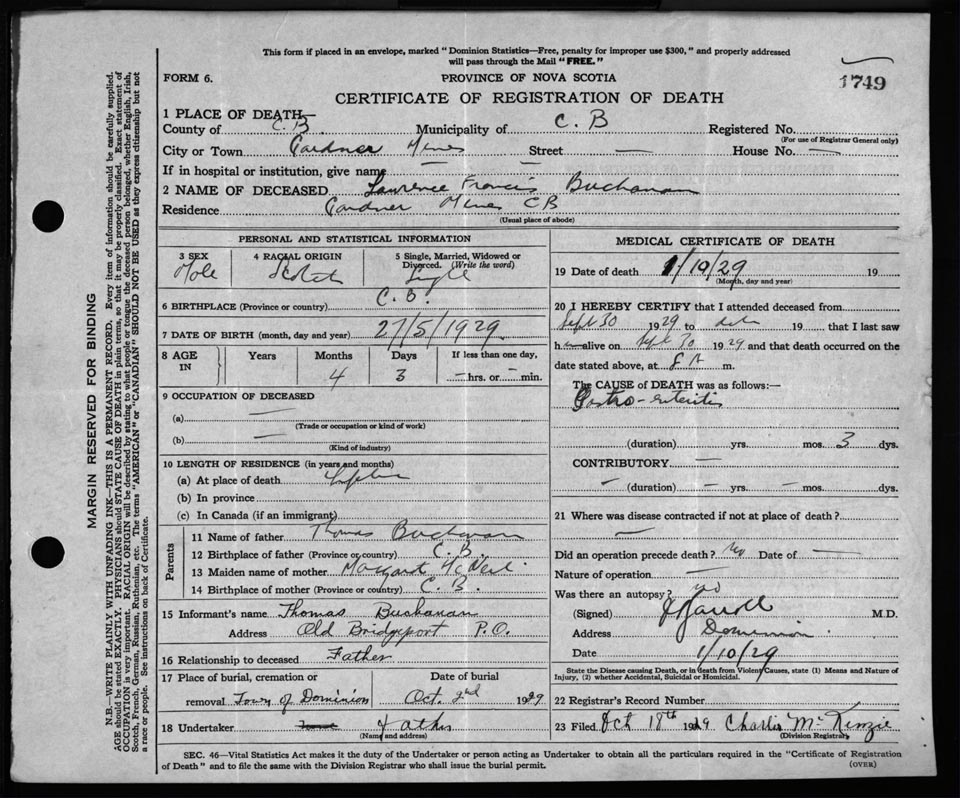 This form if placed in an envelope, marked "Dominion Statistics—Free, penalty for improper use $300," and properly addressed
will pass through the Mail "FREE."
FORM 6. PROVINCE OF NOVA SCOTIA 1749
CERTIFICATE OF REGISTRATION OF DEATH
1 PLACE OF DEATH—
County of C. B. Municipality of C. B Registered No.
(For use of Registrar General only)
City or Town Gardner Mines Street — House No. —
If in hospital or institution, give name — —
2 NAME OF DECEASED Lawrence Francis Buchanan
Residence Gardner Mines CB
(Usual place of abode)
PERSONAL AND STATISTICAL INFORMATION
3 SEX 4 RACIAL ORIGIN 5 Single, Married, Widowed or
Divorced. (Write the word)
Male Scotch Single
6 BIRTHPLACE (Province or country) C. B.
7 DATE OF BIRTH (month, day and year) 27/5/1929.
8 AGE IN Years Months Days If less than one day,
4 3 — hrs. or — min.
9 OCCUPATION OF DECEASED
(a) —
(Trade or occupation or kind of work)
(b) —
(Kind of industry)
10 LENGTH OF RESIDENCE (in years and months)
(a) At place of death
(b) In province
(c) In Canada (if an immigrant)
Parents
11 Name of father Thomas Buchanan
12 Birthplace of father (Province or country) C. B.
13 Maiden name of mother Margaret McNeil
14 Birthplace of mother (Province or country) C. B.
15 Informant's name Thomas Buchanan
Address Old Bridgeport P.O.
16 Relationship to deceased Father
17 Place of burial, cremation or Date of burial
removal Town of Dominion Oct. 2nd 1929
18 Undertaker Father
(Name and address)
MEDICAL CERTIFICATE OF DEATH
19 Date of death 1/10/29 19
(Month, day and year)
20 I HEREBY CERTIFY that I attended deceased from
Sept 30 1929 to date 19 that I last saw
h alive on Sept 30 1929 and that death occurred on the
date stated above, at 8 A m.
The CAUSE of DEATH was as follows:—
Gastro-enteritis
(duration) yrs. mos. 3 dys.
CONTRIBUTORY —
— (duration) — yrs. — mos. dys.
21 Where was disease contracted if not at place of death?
—
Did an operation precede death? No Date of —
Nature of operation —
Was there an autopsy? No
(Signed) M.D.
Address Dominion
Date 1/10/29
State the Disease causing Death, or in death from Violent Causes, state (1) Means and Nature of
Injury, (2) whether Accidental, Suicidal or Homicidal.
22 Registrar's Record Number
23 Filed Oct 18th 1929 Charles McKinzie
(Division Registrar)
SEC. 46—Vital Statistics Act makes it the duty of the Undertaker or person acting as Undertaker to obtain all the particulars required in the "Certificate of Registration
of Death" and to file the same with the Division Registrar who shall issue the burial permit. (OVER)
MARGIN RESERVED FOR BINDING
N.B.—WRITE PLAINLY WITH UNFADING INK—THIS IS A PERMANENT RECORD. Every item of information should be carefully supplied.
AGE should be stated EXACTLY. PHYSICIANS should STATE CAUSE OF DEATH in plain terms, so that it may be properly classified. Exact statement of
OCCUPATION is very important. RACIAL ORIGIN will be described by stating to what people or tongue the deceased person belonged, whether English, Irish,
Scotch, French, German, Russian, Ruthenian, etc. The terms "AMERICAN" or "CANADIAN" SHOULD NOT BE USED as they express citizenship but not
a race or people. See instructions on back of Certificate.